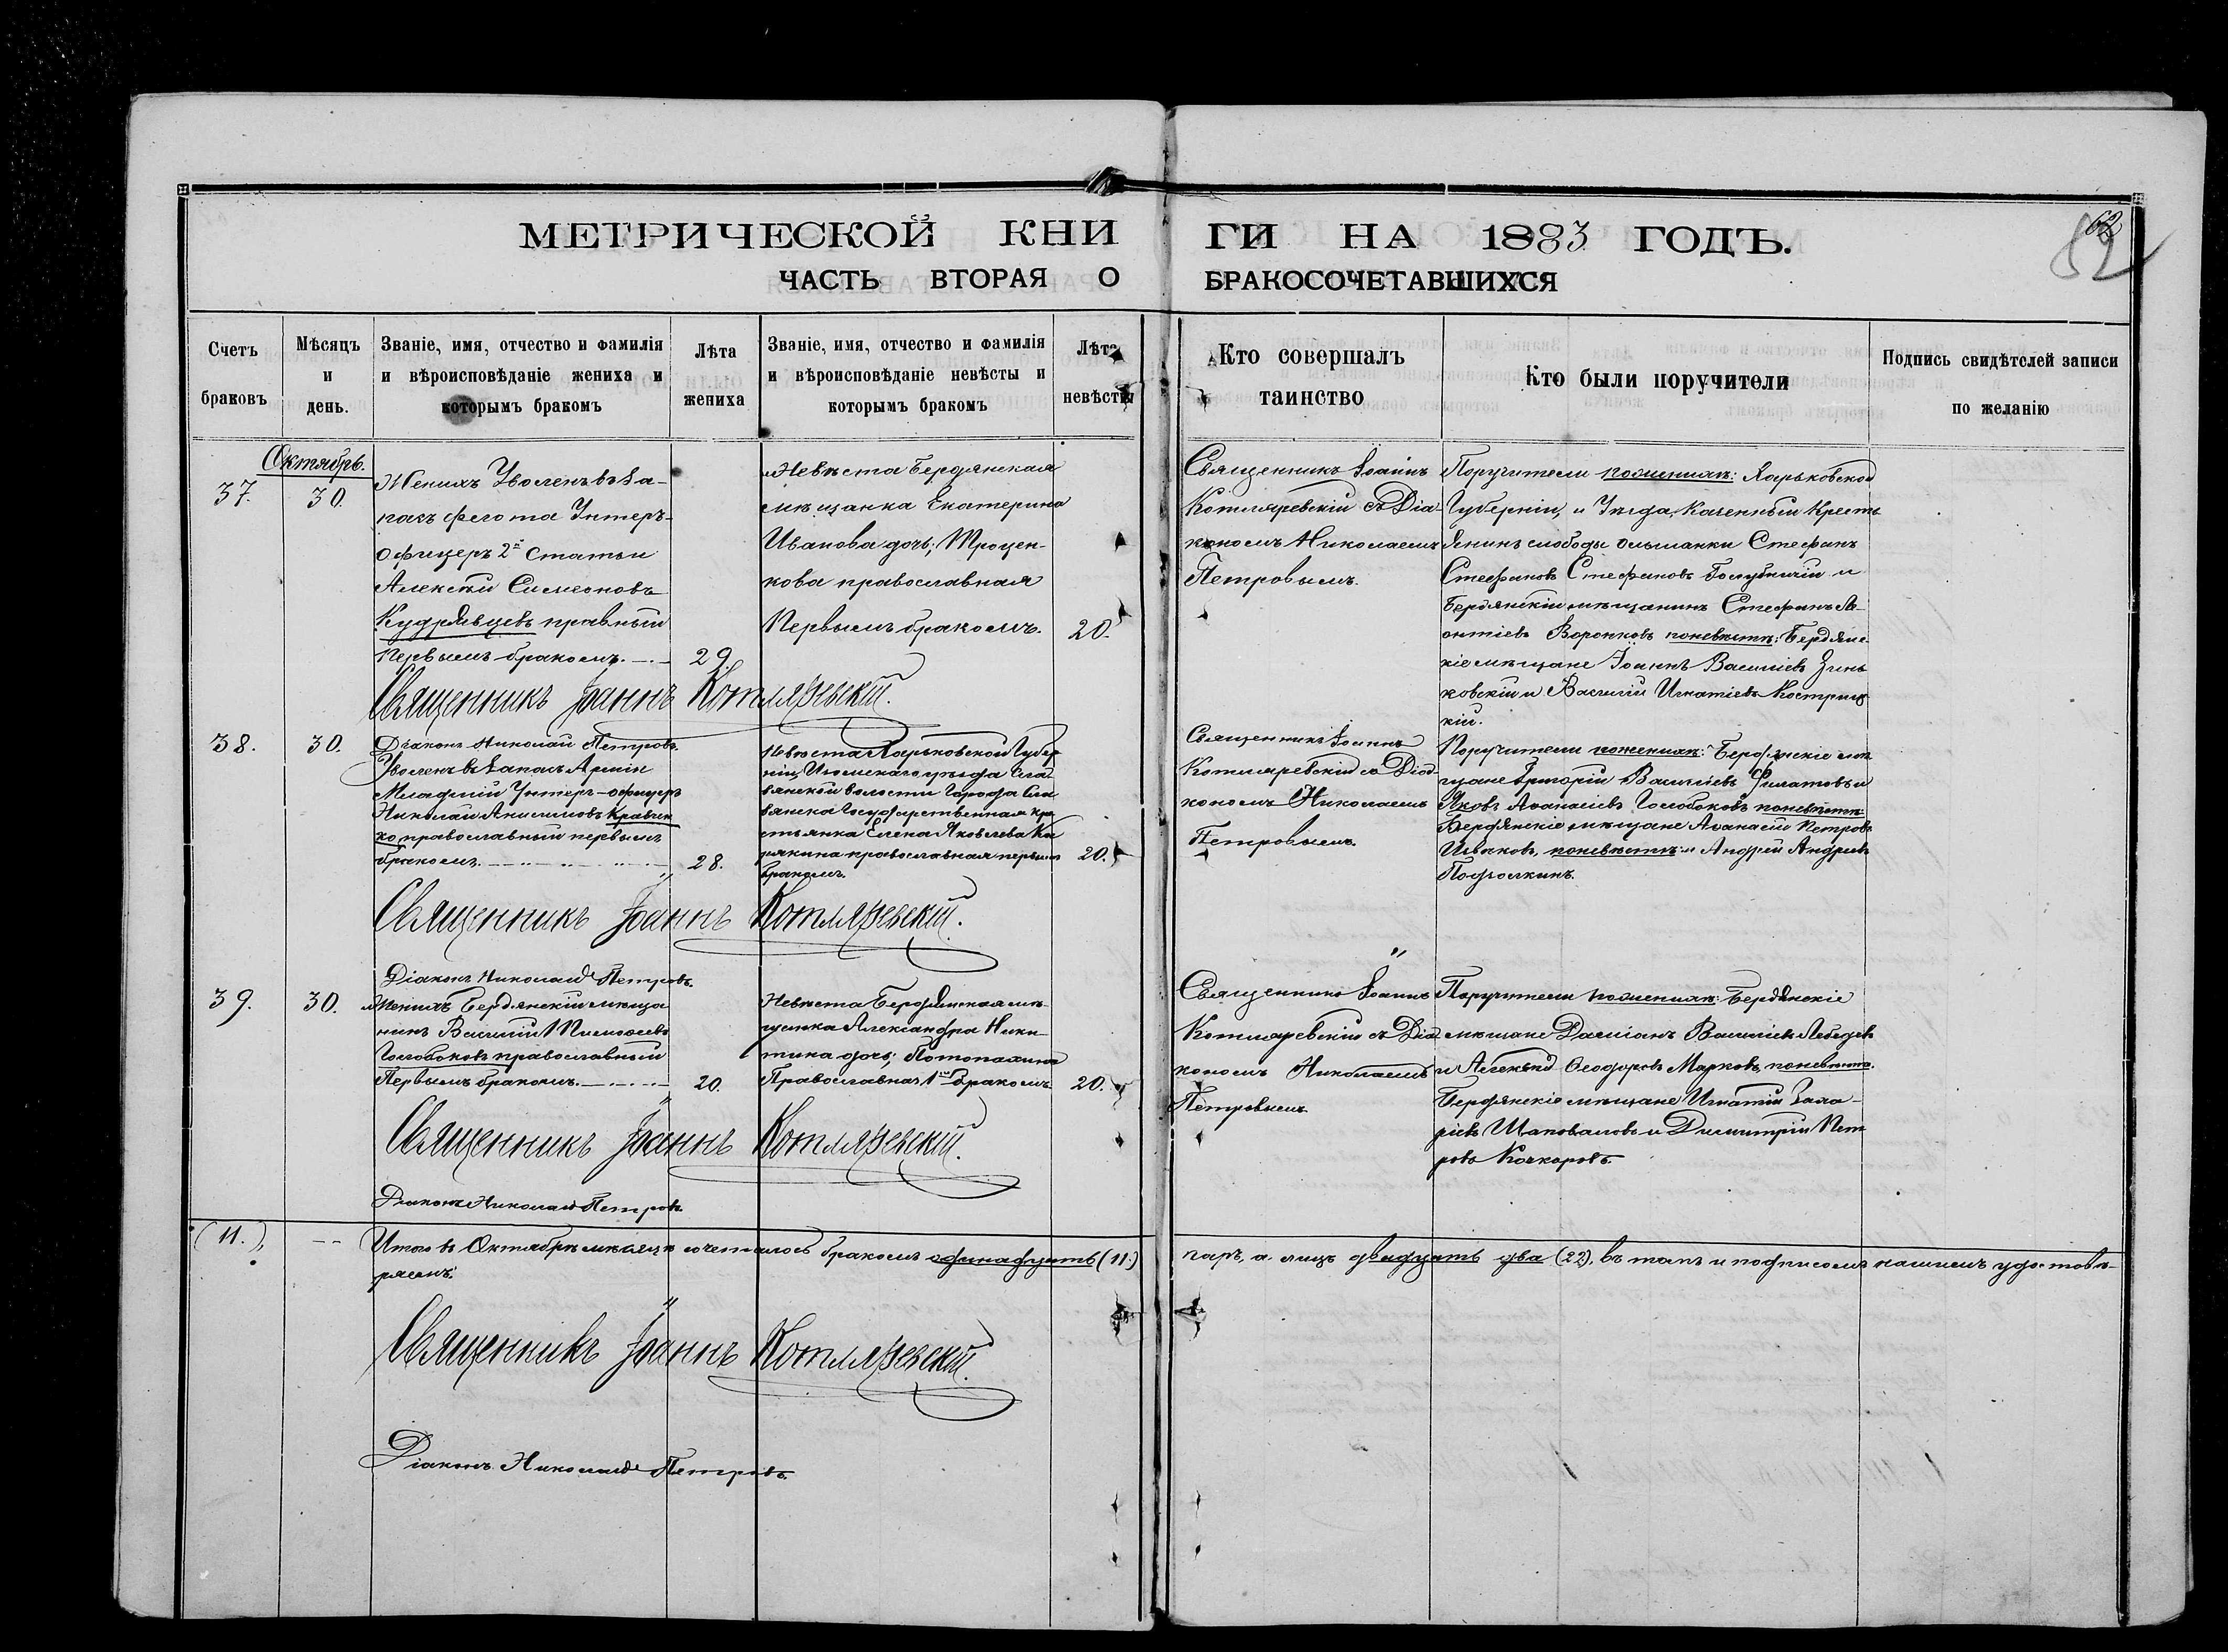 МЕТРИЧЕСКОЙ КНИ ГИ НА 1883 ГОДЪ.
ЧАСТЬ ВТОРАЯ О БРАКОСОЧЕТАВШИХСЯ
62
Счетъ
браковъ
Мѣсяцъ
и
день.
Званіе, имя, отчество и фамилія
и вѣроисповѣданіе жениха и
которымъ бракомъ
Лѣта
жениха
Званіе, имя, отчество и фамилія
и вѣроисповѣданіе невѣсты и
которымъ бракомъ
Лѣта
невѣсты
Кто совершалъ
таинство
Кто были поручители
Подпись свидѣтелей записи
по желанію
Октябрь.
37.
30.
Женихъ Уволенъ въ За-
пасъ флота Унтеръ-
Офицеръ 2й Статьи
Алексѣй Симеоновъ
Кудрявцевъ правный
Первымъ бракомъ.
29.
Невѣста Бердянская
мѣщанка Екатерина
Иванова дочь, Троцен-
кова православная
Первымъ бракомъ.
20.
Священникъ Іоаннъ
Котляревскій съ Діа-
кономъ Николаемъ
Петровымъ.
Поручители пожениху: Харьковской
Губерніи, и Уѣзда, Казенный Кресть
янинъ слободы Ольшанки Стефанъ
Стефановъ Стефановъ Голубничій и
Бердянскій мѣщанинъ Стефанъ Ле-
онтіевъ Воронковъ поневѣстѣ: Бердянс-
кіе мѣщане Іоаннъ Василіевъ Зинь
ковскій и Василій Игнатіевъ Костриц
кій.
Священникъ Іоаннъ Котляревскій.
Діаконъ Николай Петровъ.
38.
30.
Уволенъ въ Запасъ Арміи
Младшій Унтеръ-офицеръ
Николай Анисимовъ Кравчен
ко православный первымъ
бракомъ.
28.
Невѣста Харьковской Губер
ніи, Изюмскаго уѣзда Сла
вянской волости Города Сла
вянска Государственная кре
стьянка Елена Яковлева
православная первымъ
бракомъ.
20.
Священникъ Іоаннъ
Котляревскій съ Діа-
кономъ Николаемъ
Петровымъ.
Поручители пожениху: Бердянскіе мѣ
щане Григорій Василіевъ Филатовъ и
Яковъ Аѳанасіевъ Голобоковъ поневѣстѣ:
Бердянскіе мѣщане Аѳанасій Петровъ
Ивковъ, поневѣстѣ: и Андрей Андреевъ
Подколкинъ.
Священникъ Іоаннъ Котляревскій.
Діаконъ Николай Петровъ.
39.
30.
Женихъ Бердянскій мѣща
нинъ Василій Тимоѳеевъ
Голобоковъ православный
Первымъ бракомъ.
20.
Невѣста Бердянская мѣ-
щанка Александра Ники-
тина дочь, Потопахина
Православная 1мъ бракомъ
20.
Священникъ Іоаннъ
Котляревскій съ Діа-
кономъ Николаемъ
Петровымъ.
Поручители пожениху: Бердянскіе
мѣщане Даміанъ Василіевъ Лебедевъ
и Алексѣй Ѳеодоровъ Марковъ, поневѣстѣ.
Бердянскіе мѣщане Игнатій Заха-
ріевъ Шаповаловъ и Димитрій Пет
ровъ Кочкаровъ.
Священникъ Іоаннъ Котляревскій.
Діаконъ Николай Петровъ.
(11.)
Итого въ Октябрѣ мѣсяцѣ сочеталось бракомъ одинадцать (11.) паръ, а лицъ двадцать два (22), въ томъ и подписомъ нашимъ удостовѣ-
ряемъ:
Священникъ Іоаннъ Котляревскій.
Діаконъ Николай Петровъ.